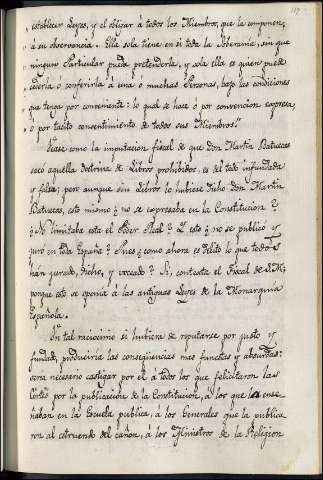 117
establecer Leyes, y el obligar á todos los Miembros, que la componen,
á su observancia. Ella sola tiene en sí toda la Soberanía, sin que
ningun Particular pueda pretenderla, y sola ella es quien puede
cederla ó conferirla á una ó muchas Personas, bajo las condiciones
que tenga por conveniente: lo qual se hace ó por convencion expresa,
ó por tácito consentimiento de todos sus Miembros."
Vease como la imputacion fiscal de que don Martin Batuecas
sacó aquella doctrina de Libros prohibidos, es del todo infundada
y falsa; pero aunque sin Libros lo hubiese dicho don Martin
Batuecas, esto mismo ¿no se expresaba en la Constitucion?
¿No limitaba esta el Poder Real? ¿Y esto no se publicó y
juró en toda España? ¿Pues como ahora es delito lo que todos
han jurado, dicho, y voceado? Si, contesta el Fiscal de S.M;
porque esto se oponia á las antiguas Leyes de la Monarquia
Española.
Un tal raciocinio si hubiera de reputarse por justo y
fundado, produciria las conseqüencias mas funestas y absurdas:
seria necesario castigar por él á todos los que felicitaron las
Cortes por la publicacion de la Constitucion, á los que la ense-
ñaban en la Escuela publica, á los Generales que la publica-
ron al estruendo del cañon, á los Ministros de la Religion